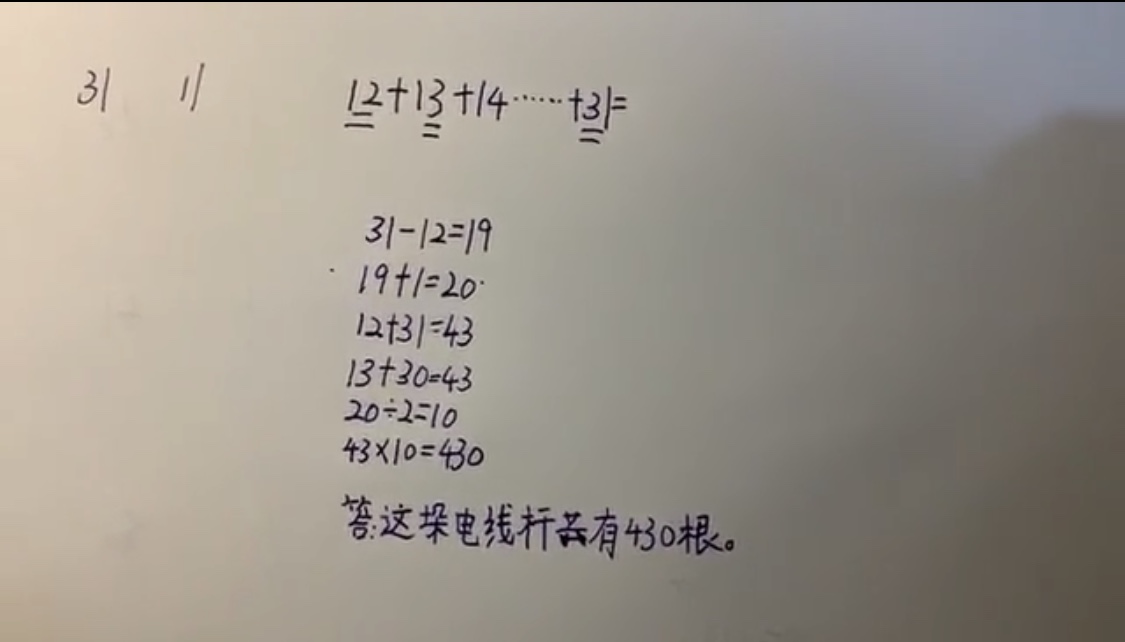 31 11 12+13+14……+31=
31-12=19
19+1=20
12+31=43
13+30=43
20÷2=10
43×10=430
答:这垛电线杆共有430根。